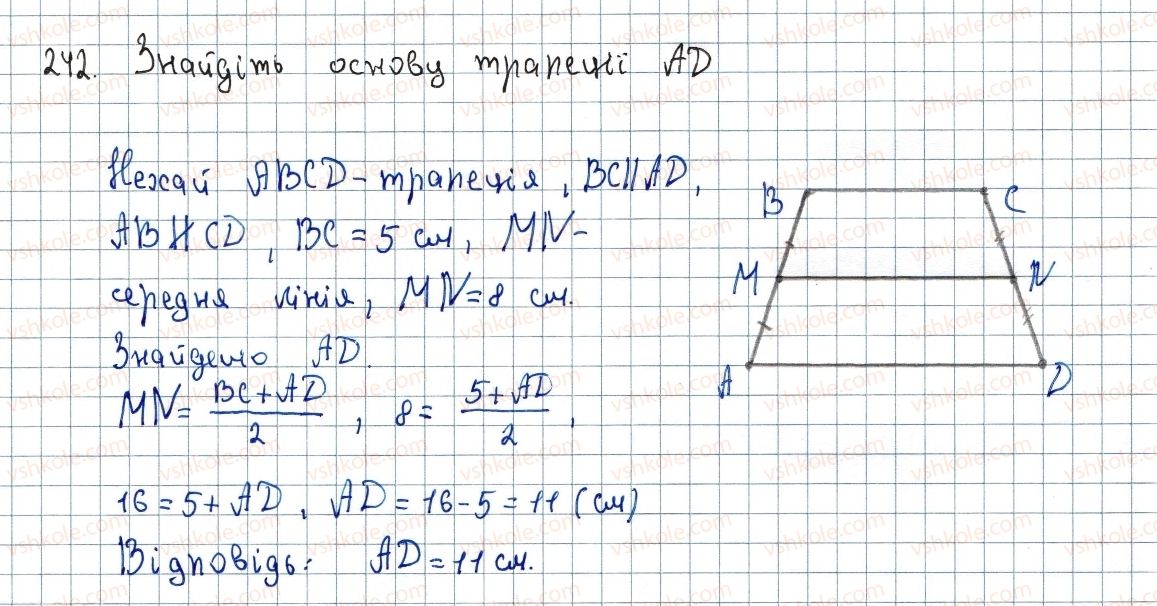 242. Знайдіть основу трапеції AD
Нехай ABCD – трапеція, BC||AD,
AB∦CD, BC = 5 см, MN –
середня лінія, MN = 8 см.
Знайдемо AD.
MN = (BC + AD)/2, 8 = (5 + AD)/2,
16 = 5 + AD, AD = 16 - 5 = 11 (см)
Відповідь: AD = 11 см.
B C
M N
A D
vshkole.com